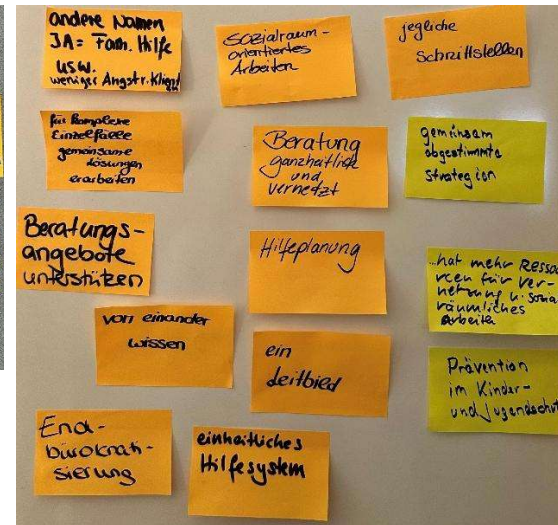 andere Namen
JA = Fam. Hilfe
usw.
weniger Angstr. Klingt
Sozialraum-
orientiertes
Arbeiten
jegliche
Schnittstellen
für komplexe
Einzelfälle
gemeinsame
Lösungen
erarbeiten
Beratung
ganzheitlich
und
vernetzt
gemeinsam
abgestimmte
Strategien
Beratungs-
angebote
unterstützen
Hilfeplanung
...hat mehr Ressou
rcen für Ver-
netzung u. sozial
räumliches
Arbeiten
von einander
wissen
ein
Leitbild
Prävention
im Kinder-
und Jugendschutz
End-
bürokrati-
sierung
einheitliches
Hilfesystem